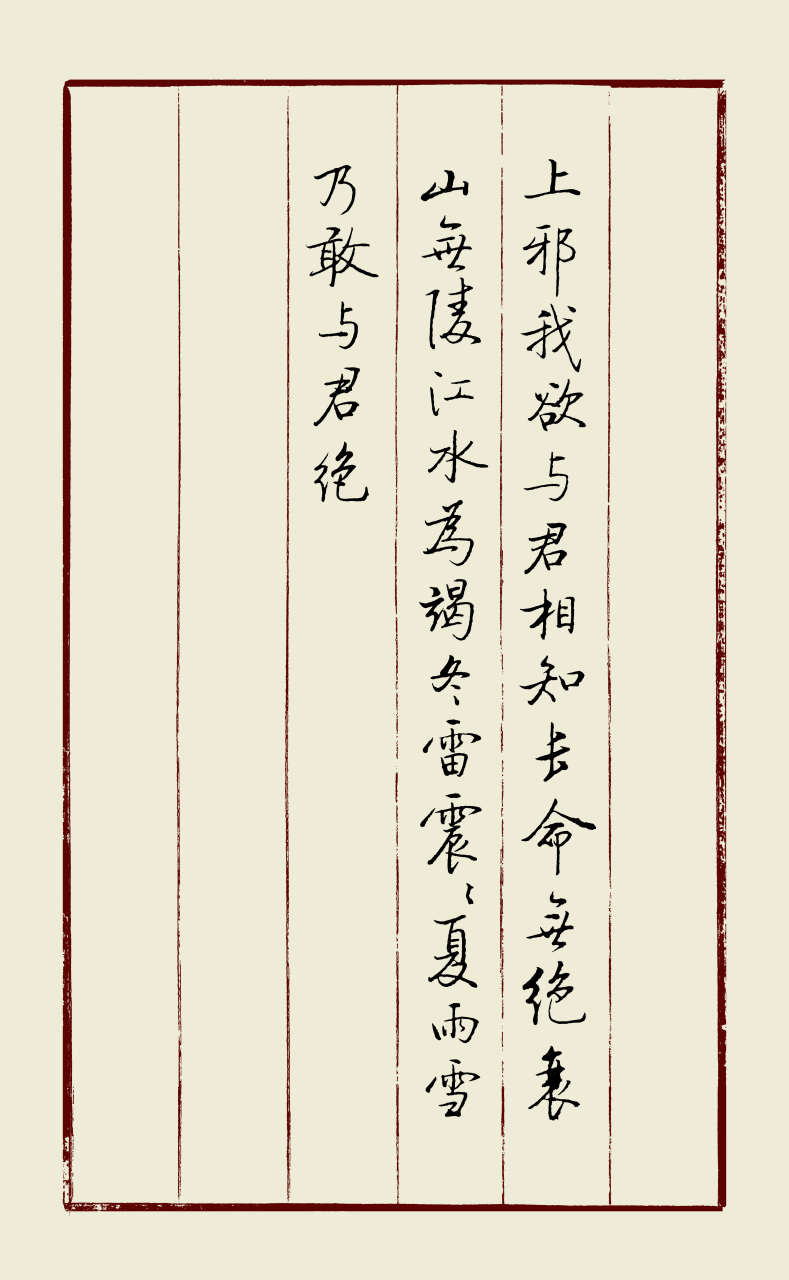 上邪我欲与君相知长命無绝衰
山無陵江水為竭冬雷震〻夏雨雪
乃敢与君绝